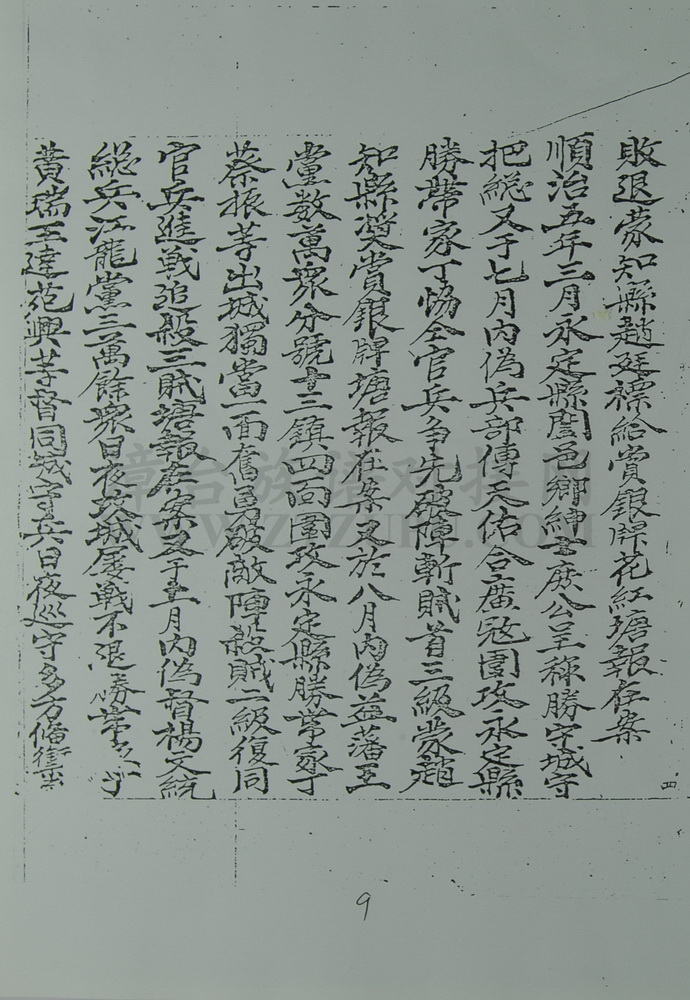 敗退蒙知縣趙廷標給賞銀牌花紅塘報存案
順治五年三月永定縣闔邑鄉紳士庶公呈称勝字城守
把総又于七月內偽兵部傳天佑合廣冦圍攻永定縣
勝帶家丁協仝官兵争先破陣斬賊首三級蒙趙
知縣奨賞銀牌塘報在案又於八月內偽益藩王
黨数萬衆分號十三鎮四囬圍攻永定縣勝帶家丁
蔡振等出城獨當一面奮勇破敵陣殺賊二級復同
官兵進戰追殺三賊塘報在案又于十一月內偽督楊文統
総兵江龍黨三萬餘衆日夜攻城屡戰不退勝帶
黃瑞王達苑興等督同城守兵日夜巡守多方俻
四
9
章台族譜对接网